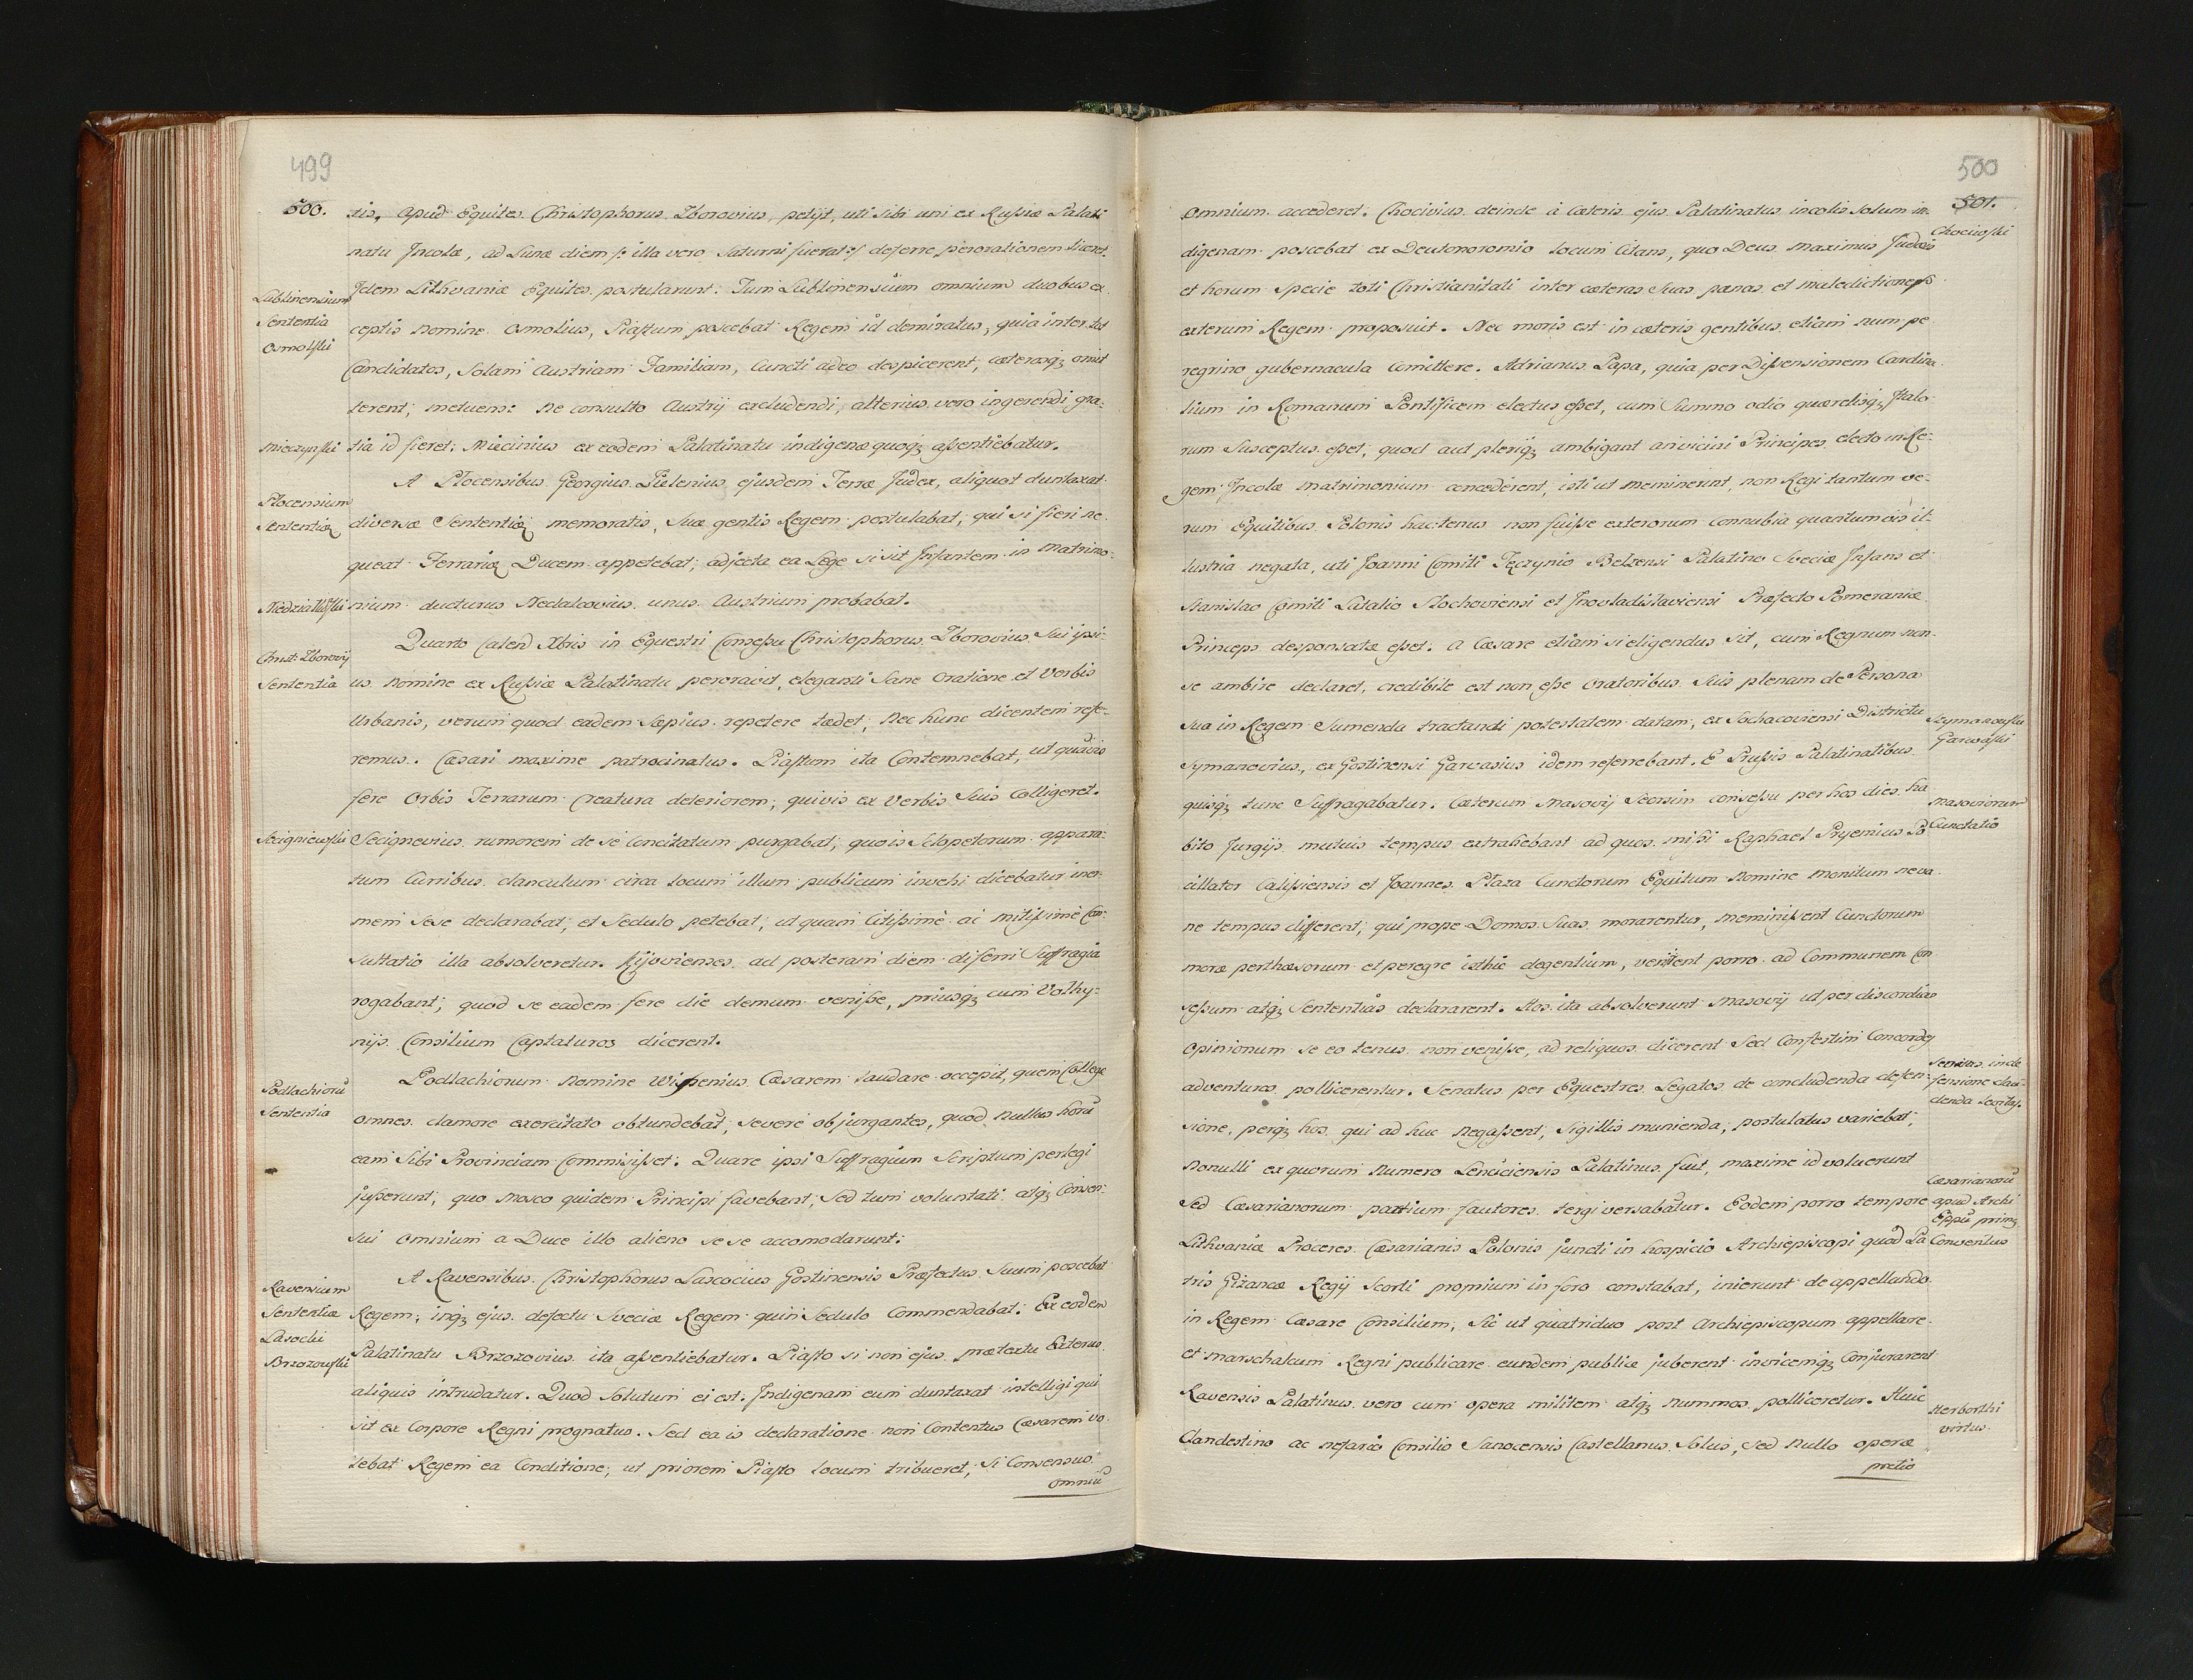 499
500.
tis, apud Equites Christophorus Zborovius, petijt, uti sibi uni ex Russiæ Palati
natu Incolæ, ad Lunæ diem /: illa vero Saturni fuerat :/ deferre perorationem liceret.
Idem Lithvaniæ Equites postularunt. Tum Lublinensium omnium duobus ex
Lublinensium
Sententia
Osmolski
ceptis nomine Osmolius, Piastum poscebat Regem id demiratus, quia inter tot
Candidatos, solam Austriam Familiam, cuncti adeo despicerent, cæterasq; omit
terent, metuens: ne consulto Austrij excludendi, alterius vero ingerendi gra-
Mieczynski
tia id fieret; Miecinius ex eodem Palatinatu indigenæ quoq; assentiebatur.
A Plocensibus Georgius Pielenius, ejusdem Terræ Judex, aliquot duntaxat
Plocensium
Sententiæ
diversæ Sententiæ memoratis, suæ gentis Regem postulabat, qui si fieri ne-
queat Ferrariæ Ducem appetebat; adjecta ea Lege si sit Infantem in matrimo-
Niedzialkowski
nium ducturus Nedalcovius unus Austrium probabat.
Quarto Calend Xbris in Equestri Consessu Christophorus Zborovius sui ipsi-
Christ: Zborovij
Sententia
us nomine ex Russiæ Palatinatu peroravit, eleganti sane oratione et verbis
Urbanis, verum quod eadem sæpius repetere tædet, nec hunc dicentem refe-
remus. Cæsari maxime patrocinatus. Piastum ita contemnebat, ut quavis
fere Orbis Terrarum creatura deteriorem, quivis ex verbis suis colligeret.
Siecigniewski
Secignevius rumorem de se concitatum purgabat; quo is Sclopetorum appara-
tum Curribus clanculum circa locum illum publicum invehi dicebatur iner-
mem sese declarabat, et sedulo petebat, ut quam citissimè ac mitissimè Con-
sultatio illa absolveretur. Kijovienses ad posteram diem differri Suffragia
rogabant; quod se eadem fere die demum venisse, priusq; cum Volhy-
nijs Consilium captaturos dicerent.
Podlachiorũ
Sententia
Podlachiorum nomine Wissenius Cæsarem laudare occepit, quem Collegæ
omnes clamore exercitato obtundebãt, severè objurgantes, quod nullus horũ
eam sibi Provinciam commisisset. Quare ipsi Suffragium Scriptum perlegi
jusserunt, quo Mosco quidem Principi favebant, sed tum voluntati atq; Consen-
sui omnium a Duce illo alieno sese accomodarunt.
Ravensium
Sententiæ
Lasocki
Brzozowski
A Ravensibus Christophorus Lascocius Gostinensis Præfectus suum poscebat
Regem; inq; ejus defectu Sveciæ Regem quin sedulo commendabat. Ex eodem
Palatinatu Brzozovius ita assentiebatur. Piasto si non ejus prætextu Exterus
aliquis intrudatur. Quod solutum ei est. Indigenam eum duntaxat intelligi qui
sit ex Corpore Regni prognatus. Sed ea is declaratione non contentus Cæsarem vo-
lebat Regem ea Conditione, ut priorem Piasto locum tribueret, si Consensus
omniũ
500
501.
omnium accederet. Chocivius deinde à cæteris ejus Palatinatus incolis solum in-
Chociwski
digenam poscebat ex Deutonoromio locum citans, quo Deus maximus Judæis
et horum specie toti Christianitati inter cæteras suas pænas et maledictiones
exterum Regem proposuit. Nec moris est in cæteris gentibus etiam num pe-
regrino gubernacula comittere. Adrianus Papa, quia per Dissensionem Cardina-
lium in Romanum Pontificem electus esset, cum summo odio quærelisq; Italo-
rum susceptus esset; quod aut pleriq; ambigant an vicini Principes electo in Re-
gem Incolæ matrimonium concederent, isti ut meminerint, non Regi tantum ve-
rum Equitibus Polonis hactenus non fuisse exterorum connubia quantumvis il-
lustria negata, uti Joanni Comiti Tęczynio Belzensi Palatino Sveciæ Infans et
Stanislao Comiti Latalio Slochoviensi et Inovladislaviensi Præfecto Pomeraniæ
Princeps desponsatæ esset. A Cæsare etiam si eligendus sit, cum Regnum non
se ambire declaret, credibile est non esse oratoribus suis plenam de Persona
sua in Regem sumenda tractandi potestatem datam, ex Sochacoviensi Districtu
Szymanowski
Garwaski
Symanovius, ex Gostinensi Garvasius idem referrebant. E Prussis Palatinatibus
quisq; tunc suffragabatur. Cæterum Masovij seorsim consessu per hos dies ha-
Masoviorum
Cunctatio
bito jurgijs mutuis tempus extrahebant ad quos missi Raphael Pryemius Po-
cillator Calissiensis et Joannes Plaza Cunctorum Equitum nomine monitum neva-
ne tempus different; qui prope Domos suas morarentur, meminissent Cunctorum
moræ perthæsorum et peregre isthic degentium, venirent porro ad Communem Con-
sessum atq; Sententias declararent. Hos ita absolverunt Masovij ut per discordias
Opinionum se eo tenus non venisse, ad reliquos dicerent Sed Confestim Concordes
adventuros pollicerentur. Senatus per Equestres Legatos de concludenda defen-
Senatus in de
fensione clau-
denda
sione, perq; hos qui ad huc negassent, sigillis munienda, postulatus variebat;
Nonulli ex quorum numero Lenciciensis Palatinus fuit, maxime id voluerunt
Cæsarianorũ
apud Archi
Eppũ primq
Conventus
Sed Cæsarianorum partium fautores tergiversabãtur. Eodem porro tempore
Lithvaniæ Proceres Cæsarianis Polonis juncti in hospicio Archiepiscopi quod Ba-
ris Gizancæ Regij Scorti promium in foro constabat, inierunt de appellando
in Regem Cæsare Consilium, Sic ut quatriduo post Archiepiscopum appellare
et Marschalcum Regni publicare eundem publicæ juberent invicemq; Conjurarent
Ravensis Palatinus vero cum opera militem atq; nummos polliceretur. Huic
Herborthi
virtus
Clandestino ac nefario Consilio Sanocensis Castellanus solus, sed nullo operæ
pretio